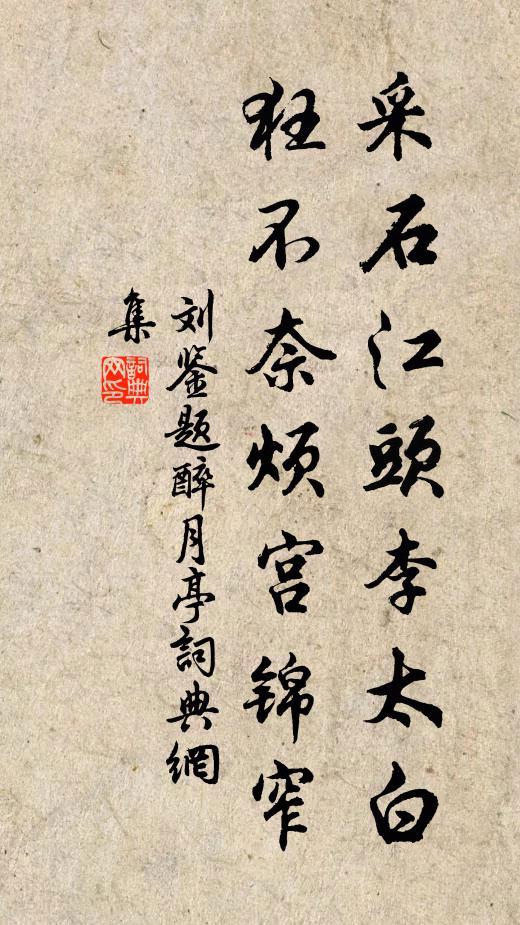 采石江頭李太白
狂不奈烦宫锦窄
刘鉴题醉月亭詞典網
集
詞典网印